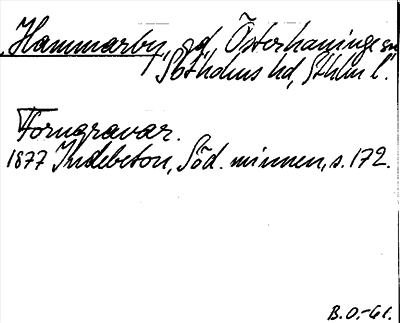 Hammarby, gd, Österhaninge sn
Sotholms hd, Sthlm l.
Forngravar.
1877 Indebetou, Söd. minnen, s. 172.
B.O.-61.